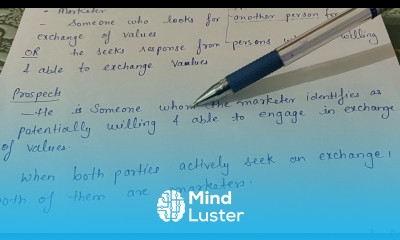 • Marketer
- Someone who looks for another person for
exchange of values
OR he seeks response from persons willing
& able to exchange values
Prospects
- He is Someone whom the marketer identifies as
potentially willing & able to engage in exchange
of values.
When both parties actively seek an exchange,
both of them are marketers.
Mind
Luster